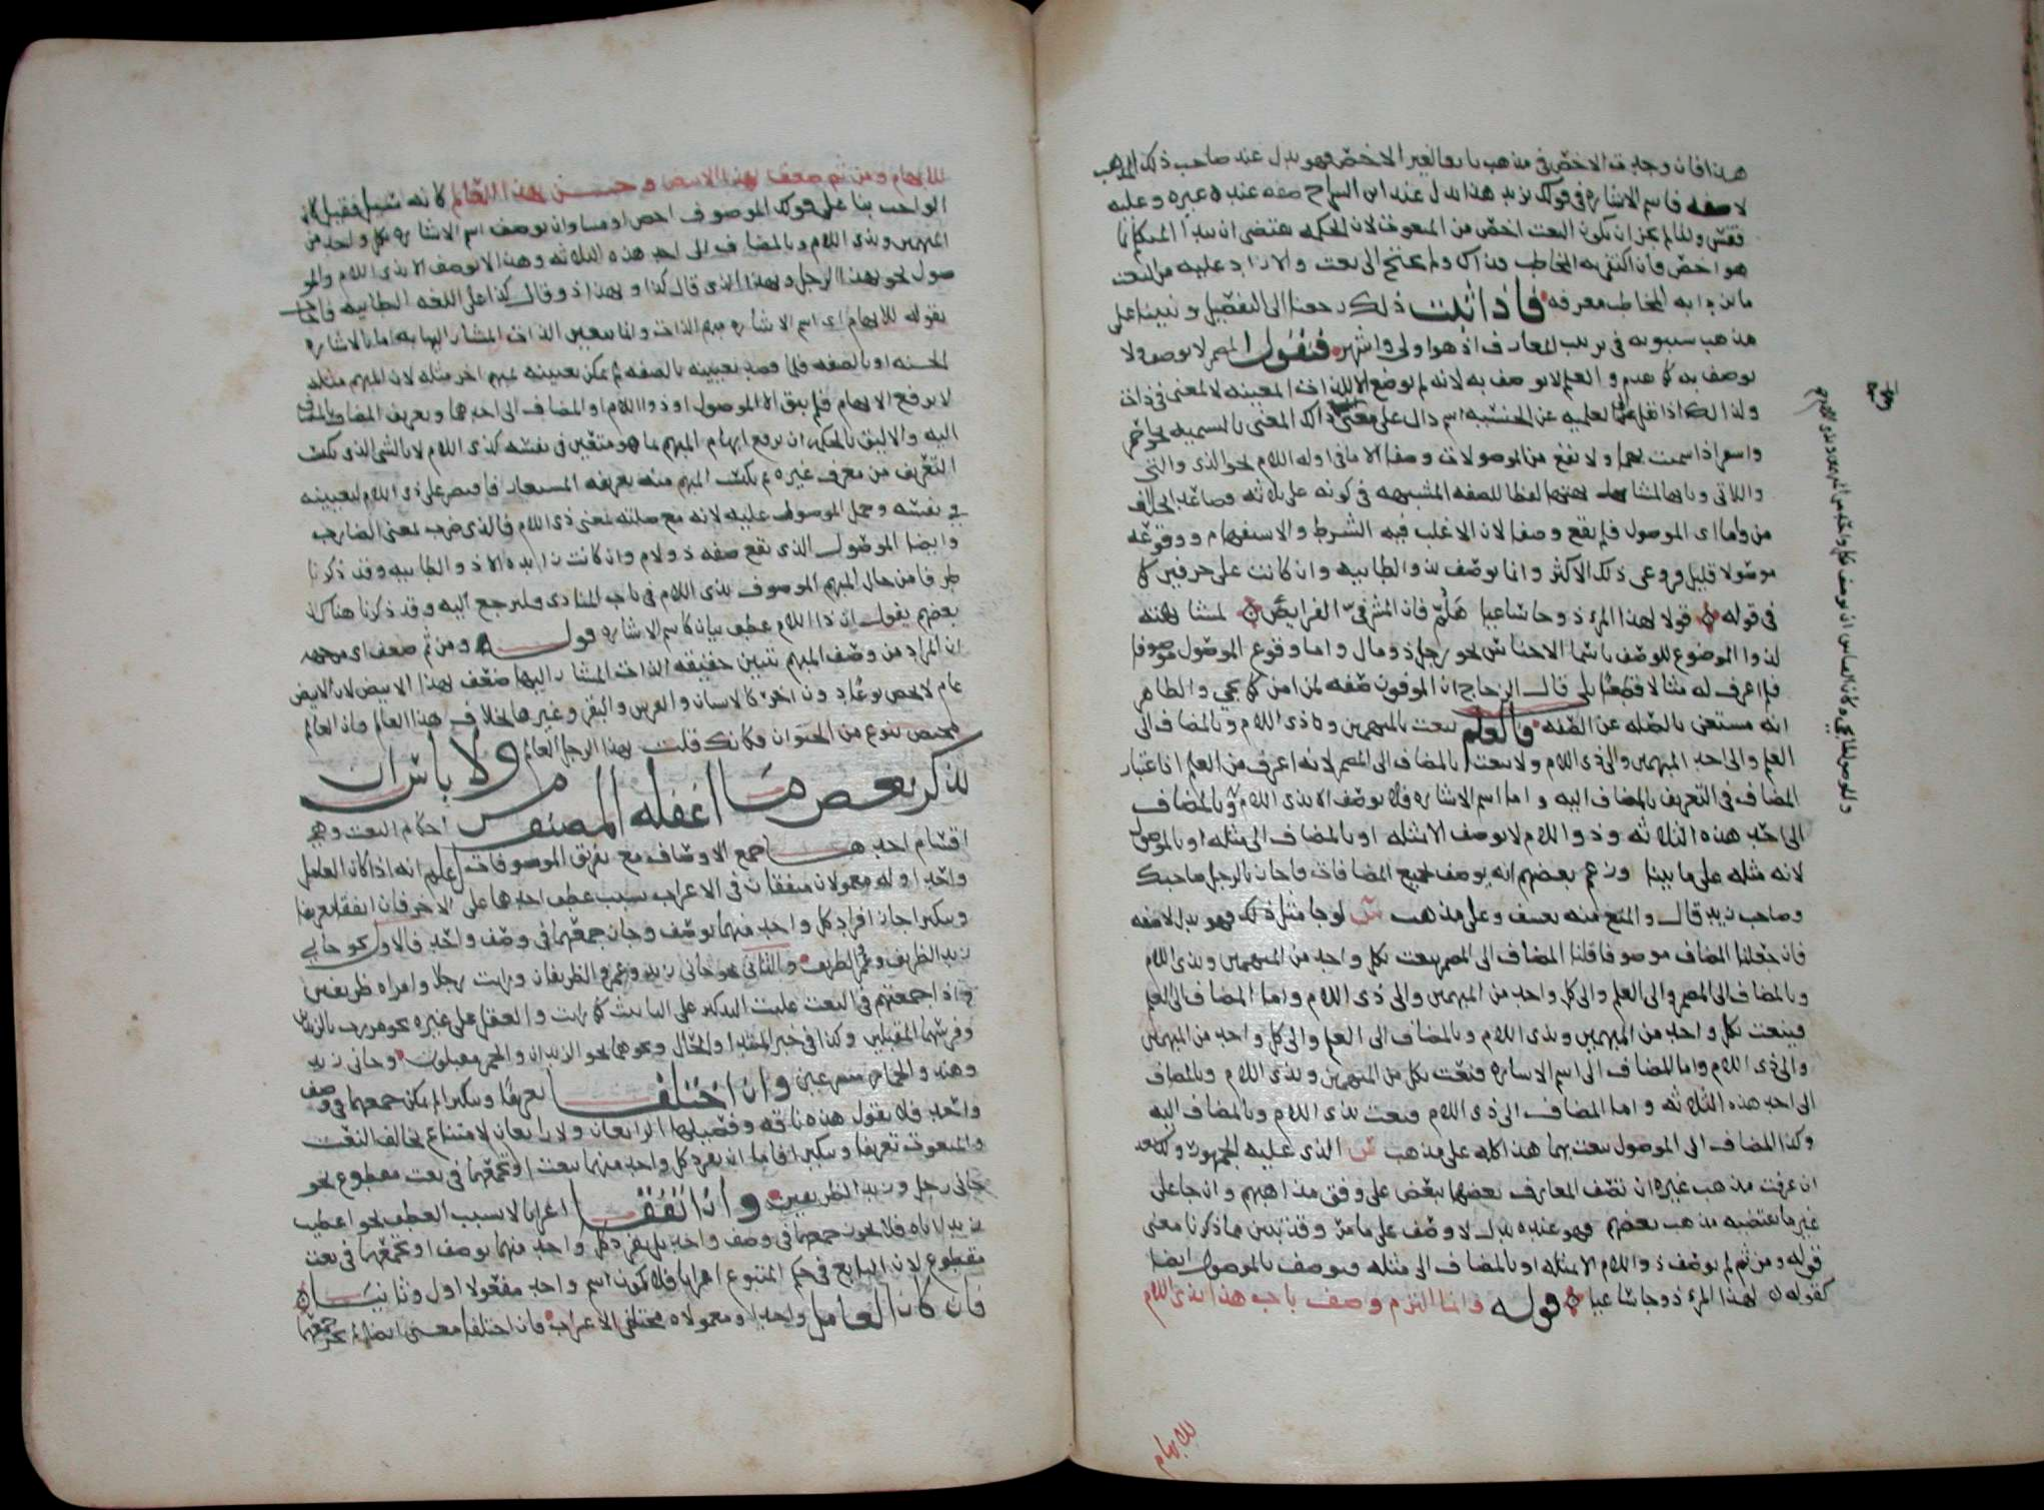 هذا فان وجد ته الاخص في مذهب تابعا لغير الاخص فهو بدل عند صاحب ذلك المذهب
لا صفه فاسم الاشاره في قولك بزيد هذا بدل عند ابن السراج صفه عند غيره وعليه
فقس وانما لم يجز ان يكون النعت اخص من المنعوت لان الحكمه تقتضى ان يبدأ المتكلم بما
هو اخص فان اكتفى به المخاطب فذاك ولم يحتج الى نعت والا زاد عليه من النعت
ما يزداد به المخاطب معرفه فاذا ثبت ذلك رجعنا الى التفصيل وبنينا على
مذهب سيبويه في ترتيب المعارف اذ هو اولى واشهر فنقول المضمر لا يوصف ولا
يوصف به كما تقدم والعلم لا يوصف به لانه لم يوضع الا للذات المعينه لا لمعنى في ذات
ولذلك اذا نقل الى العلميه عن الجنسيه اسم دال على معنى زال ذلك المعنى بالتسميه نحو احمر
واسمر اذا سميت بهما ولا يقع من الموصولات وصفا الا ما في اوله اللام نحو الذي والتي
واللاتي وبابها لمشابهتها لفظا للصفه المشبهه في كونه على ثلاثه فصاعدا بخلاف
من وما واما اى الموصول فلم يقع وصفا لان الاغلب فيه الشرط والاستفهام ووقوعه
موصولا قليل فروعى ذلك الاكثر وانما يوصف بذو الطائيه وان كانت على حرفين كما
في قوله قولا لهذا المرء ذو جاء ساعيا هلم فان المشرفي الفرايض لمشابهته
لذو الموضوع للوصف باسما الاجناس نحو رجل ذو مال واما وقوع الموصول موصوفا
فلم اعرف له مثالا قطعيا بلى قال الزجاج ان الموفون صفه لمن امن كما يجي والظاهر
انه مستغن بالصله عن الصفه فالعلم ينعت بالمبهمين وبذى اللام وبالمضاف الى
العلم والى احد المبهمين والى ذى اللام ولا ينعت بالمضاف الى المضمر لانه اعرف من العلم اذ اعتبار
المضاف في التعريف بالمضاف اليه واما اسم الاشاره فلا يوصف الا بذى اللام وبالمضاف
الى احد هذه الثلاثه وذو اللام لا يوصف الا بمثله او بالمضاف الى مثله او بالموصول
لانه مثله على ما بينا وزعم بعضهم انه يوصف بجميع المضافات فاجاز بالرجل صاحبك
وصاحب زيد قال والمنع منه تعسف وعلى مذهب س لو جا مثل ذلك فهو بدل لا صفه
فان جعلنا المضاف موصوفا قلنا المضاف الى المضمر ينعت بكل واحد من المبهمين وبذى اللام
وبالمضاف الى المضمر والى العلم والى كل واحد من المبهمين والى ذى اللام واما المضاف الى العلم
فينعت بكل واحد من المبهمين وبذى اللام وبالمضاف الى العلم والى كل واحد من المبهمين
والى ذى اللام واما المضاف الى اسم الاشاره فينعت بكل من المبهمين وبذى اللام وبالمضاف
الى احد هذه الثلاثه واما المضاف الى ذى اللام فينعت بذى اللام وبالمضاف اليه
وكذا المضاف الى الموصول ينعت بهما هذا كله على مذهب س الذى عليه الجمهور ولك بعد
ان عرفت مذهب غيره ان تصف المعارف بعضها ببعض على وفق مذاهبهم وان جا على
غير ما يقتضيه مذهب بعضهم فهو عنده بدل لا وصف على ما مر وقد تبين مما ذكرنا معنى
قوله ومن ثم لم يوصف ذو اللام الا بمثله او بالمضاف الى مثله ويوصف بالموصول ايضا
كقوله لهذا المرء ذو جا ساعيا قوله وانما التزم وصف باب هذا بذى اللام
للابهام
للابهام ومن ثم ضعف بهذا الابيض وحسن بهذا العالم كانه سئل فقيل كان
الواجب بنا على قولك الموصوف اخص او مساو ان يوصف اسم الاشاره بكل واحد من
المبهمين وبذى اللام وبالمضاف الى احد هذه الثلاثه وهذا لا يوصف الا بذى اللام والمو
صول نحو بهذا الرجل وبهذا الذى قال كذا وبهذا ذو قال كذا على اللغه الطائيه فاجاب
بقوله للابهام اى اسم الاشاره مبهم الذات وانما يتعين الذات المشار اليها به اما بالاشاره
الحسيه او بالصفه فلما قصد تعيينه بالصفه لم يمكن تعيينه بمبهم اخر مثله لان المبهم مثله
لا يرفع الابهام فلم يبق الا الموصول او ذو اللام او المضاف الى احدهما وتعريف المضاف بالمضاف
اليه والاليق بالحكمه ان يرفع ابهام المبهم بما هو متعين في نفسه كذى اللام لا بالشى الذى يكتسب
التعريف من معرف غيره ثم يكتسب المبهم منه تعريفه المستعار فاقتصر على ذى اللام لتعيينه
في نفسه وحمل الموصول عليه لانه مع صلته بمعنى ذى اللام فالذى ضرب بمعنى الضارب
وايضا الموصول الذى يقع صفه ذو لام وان كانت زايده الا ذو الطائيه وقد ذكرنا
طرفا من حال المبهم الموصوف بذى اللام في باب المنادى فليرجع اليه وقد ذكرنا هناك ان
بعضهم يقول ان ذا اللام عطف بيان كاسم الاشاره قوله ومن ثم ضعف اى من جهه
ان المراد من وصف المبهم تبيين حقيقه الذات المشار اليها ضعف بهذا الابيض لان الابيض
عام لا يخص نوعا دون اخر كالانسان والفرس والبقر وغيرها بخلاف هذا العالم فان العالم
مختص بنوع من الحيوان فكانك قلت بهذا الرجل العالم ولا باس ان
نذكر بعض ما اغفله المصنف من احكام النعت وهي
اقسام احدها جمع الاوصاف مع تفريق الموصوفات اعلم انه اذا كان العامل
واحدا وله معمولان متفقان في الاعراب بسبب عطف احدهما على الاخر فان اتفقا تعريفا
وتنكيرا جاز افراد كل واحد منهما بوصف وجاز جمعهما في وصف واحد فالاول نحو جانى
زيد الظريف وعمرو الظريف والثانى نحو جانى زيد وعمرو الظريفان ورايت رجلا وامراه ظريفين
واذا جمعتهم في النعت غلبت التذكير على التانيث كما رايت والعقل على غيره نحو مررت بالزيدين
وفرسهما المقبلين وكذا في خبر المبتدا والحال ونحوهما نحو الزيدان والحمر مقبلون وجانى زيد
وهند والحمار مسرعين وان اختلفا تعريفا وتنكيرا لم يمكن جمعهما في وصف
واحد فلا تقول هذه ناقه وفصيلها الراتعان ولا راتعان لامتناع تخالف النعت
والمنعوت تعريفا وتنكيرا فاما ان تفرد كل واحد منهما بنعت او تجمعهما في نعت مقطوع نحو
جانى رجل وزيد الظريفين وان اتفقا اعرابا لا بسبب العطف نحو اعطيت
زيدا اباه فلا يجوز جمعهما في وصف واحد بل يفرد كل واحد منهما بوصف او تجمعهما في نعت
مقطوع لان التابع في حكم المتبوع اعرابا فلا يكون اسم واحد مفعولا اول وثانيا
فان كان العامل واحدا ومعمولاه مختلفى الاعراب فان اختلفا معنى ايضا لم يجز جمعهما